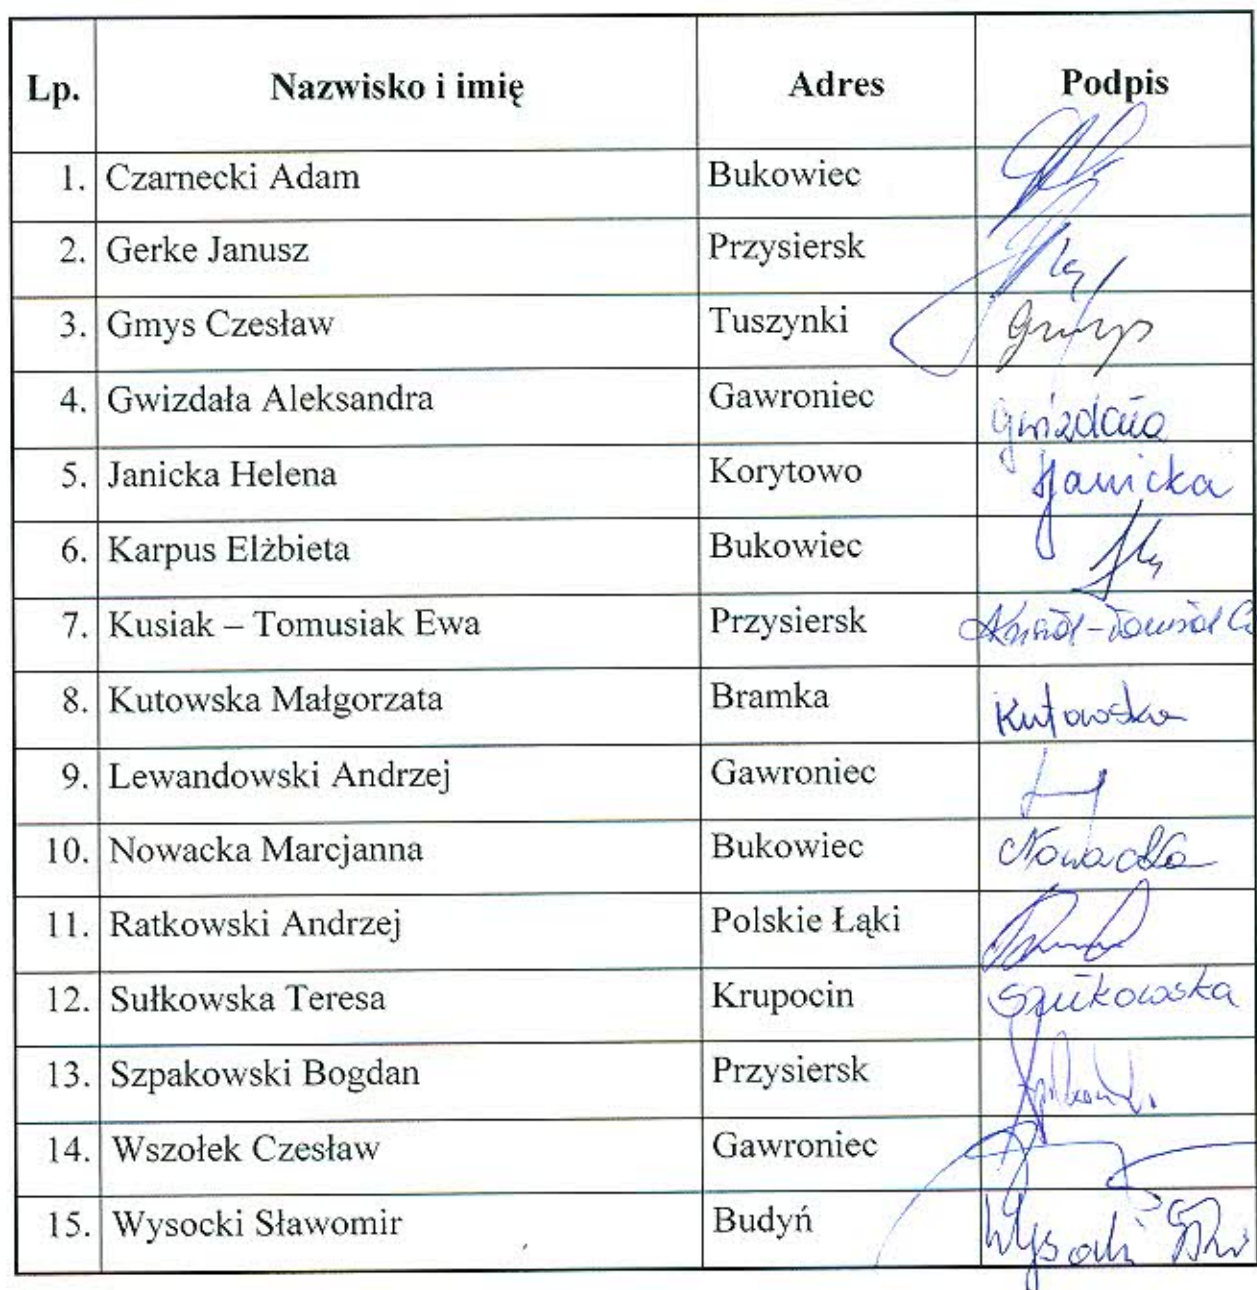 Lp. Nazwisko i imię Adres Podpis
1. Czarnecki Adam Bukowiec
2. Gerke Janusz Przysiersk
3. Gmys Czesław Tuszynki Gmys
4. Gwizdała Aleksandra Gawroniec Gwizdała
5. Janicka Helena Korytowo HJanicka
6. Karpus Elżbieta Bukowiec
7. Kusiak – Tomusiak Ewa Przysiersk
8. Kutowska Małgorzata Bramka Kutowska
9. Lewandowski Andrzej Gawroniec
10. Nowacka Marcjanna Bukowiec Nowacka
11. Ratkowski Andrzej Polskie Łąki
12. Sułkowska Teresa Krupocin
13. Szpakowski Bogdan Przysiersk
14. Wszołek Czesław Gawroniec
15. Wysocki Sławomir Budyń Wysocki